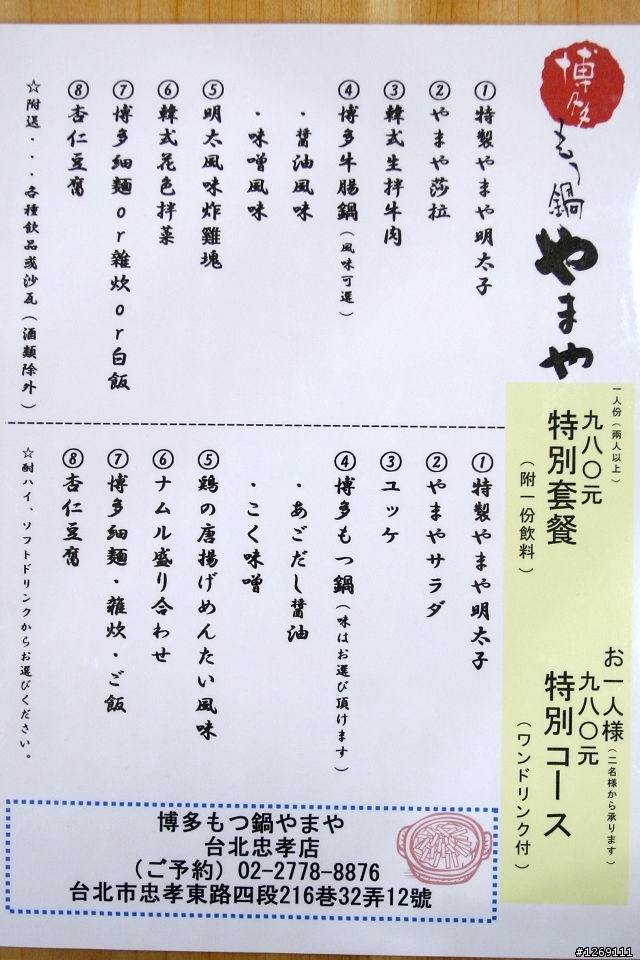 博多
もつ鍋
やまや
一人份(兩人以上)
九八〇元
特別套餐
(附一份飲料)
お一人様(二名様から承ります)
九八〇元
特別コース
(ワンドリンク付)
①特製やまや明太子
②やまや莎拉
③韓式生拌牛肉
④博多牛腸鍋(風味可選)
・醬油風味
・味噌風味
⑤明太風味炸雞塊
⑥韓式花色拌菜
⑦博多細麵or雜炊or白飯
⑧杏仁豆腐
☆附送・・・各種飲品或沙瓦(酒類除外)
①特製やまや明太子
②やまやサラダ
③ユッケ
④博多もつ鍋(味はお選び頂けます)
・あごだし醤油
・こく味噌
⑤鶏の唐揚げめんたい風味
⑥ナムル盛り合わせ
⑦博多細麺・雑炊・ご飯
⑧杏仁豆腐
☆酎ハイ、ソフトドリンクからお選びください。
博多もつ鍋やまや
台北忠孝店
(ご予約) 02-2778-8876
台北市忠孝東路四段216巷32弄12號
#1269111